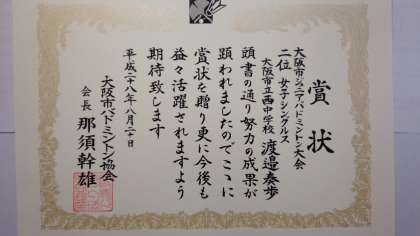 賞状
大阪市ジュニアバドミントン大会
二位 女子シングルス
大阪市立西中学校 渡邉奏歩
頭書の通り努力の成果が
顕われましたのでここに
賞状を贈り更に今後も
益々活躍されますよう
期待致します
平成二十八年八月二十日
大阪市バドミントン協会
会長 那須幹雄